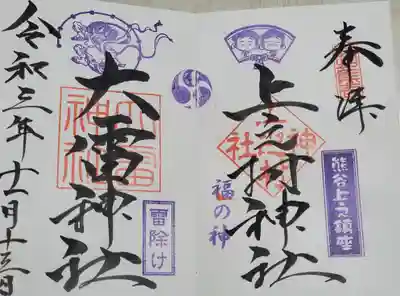 奉拝
上之村神社
熊谷上之鎮座
福の神
大雷神社
雷除け
令和三年十一月十三日